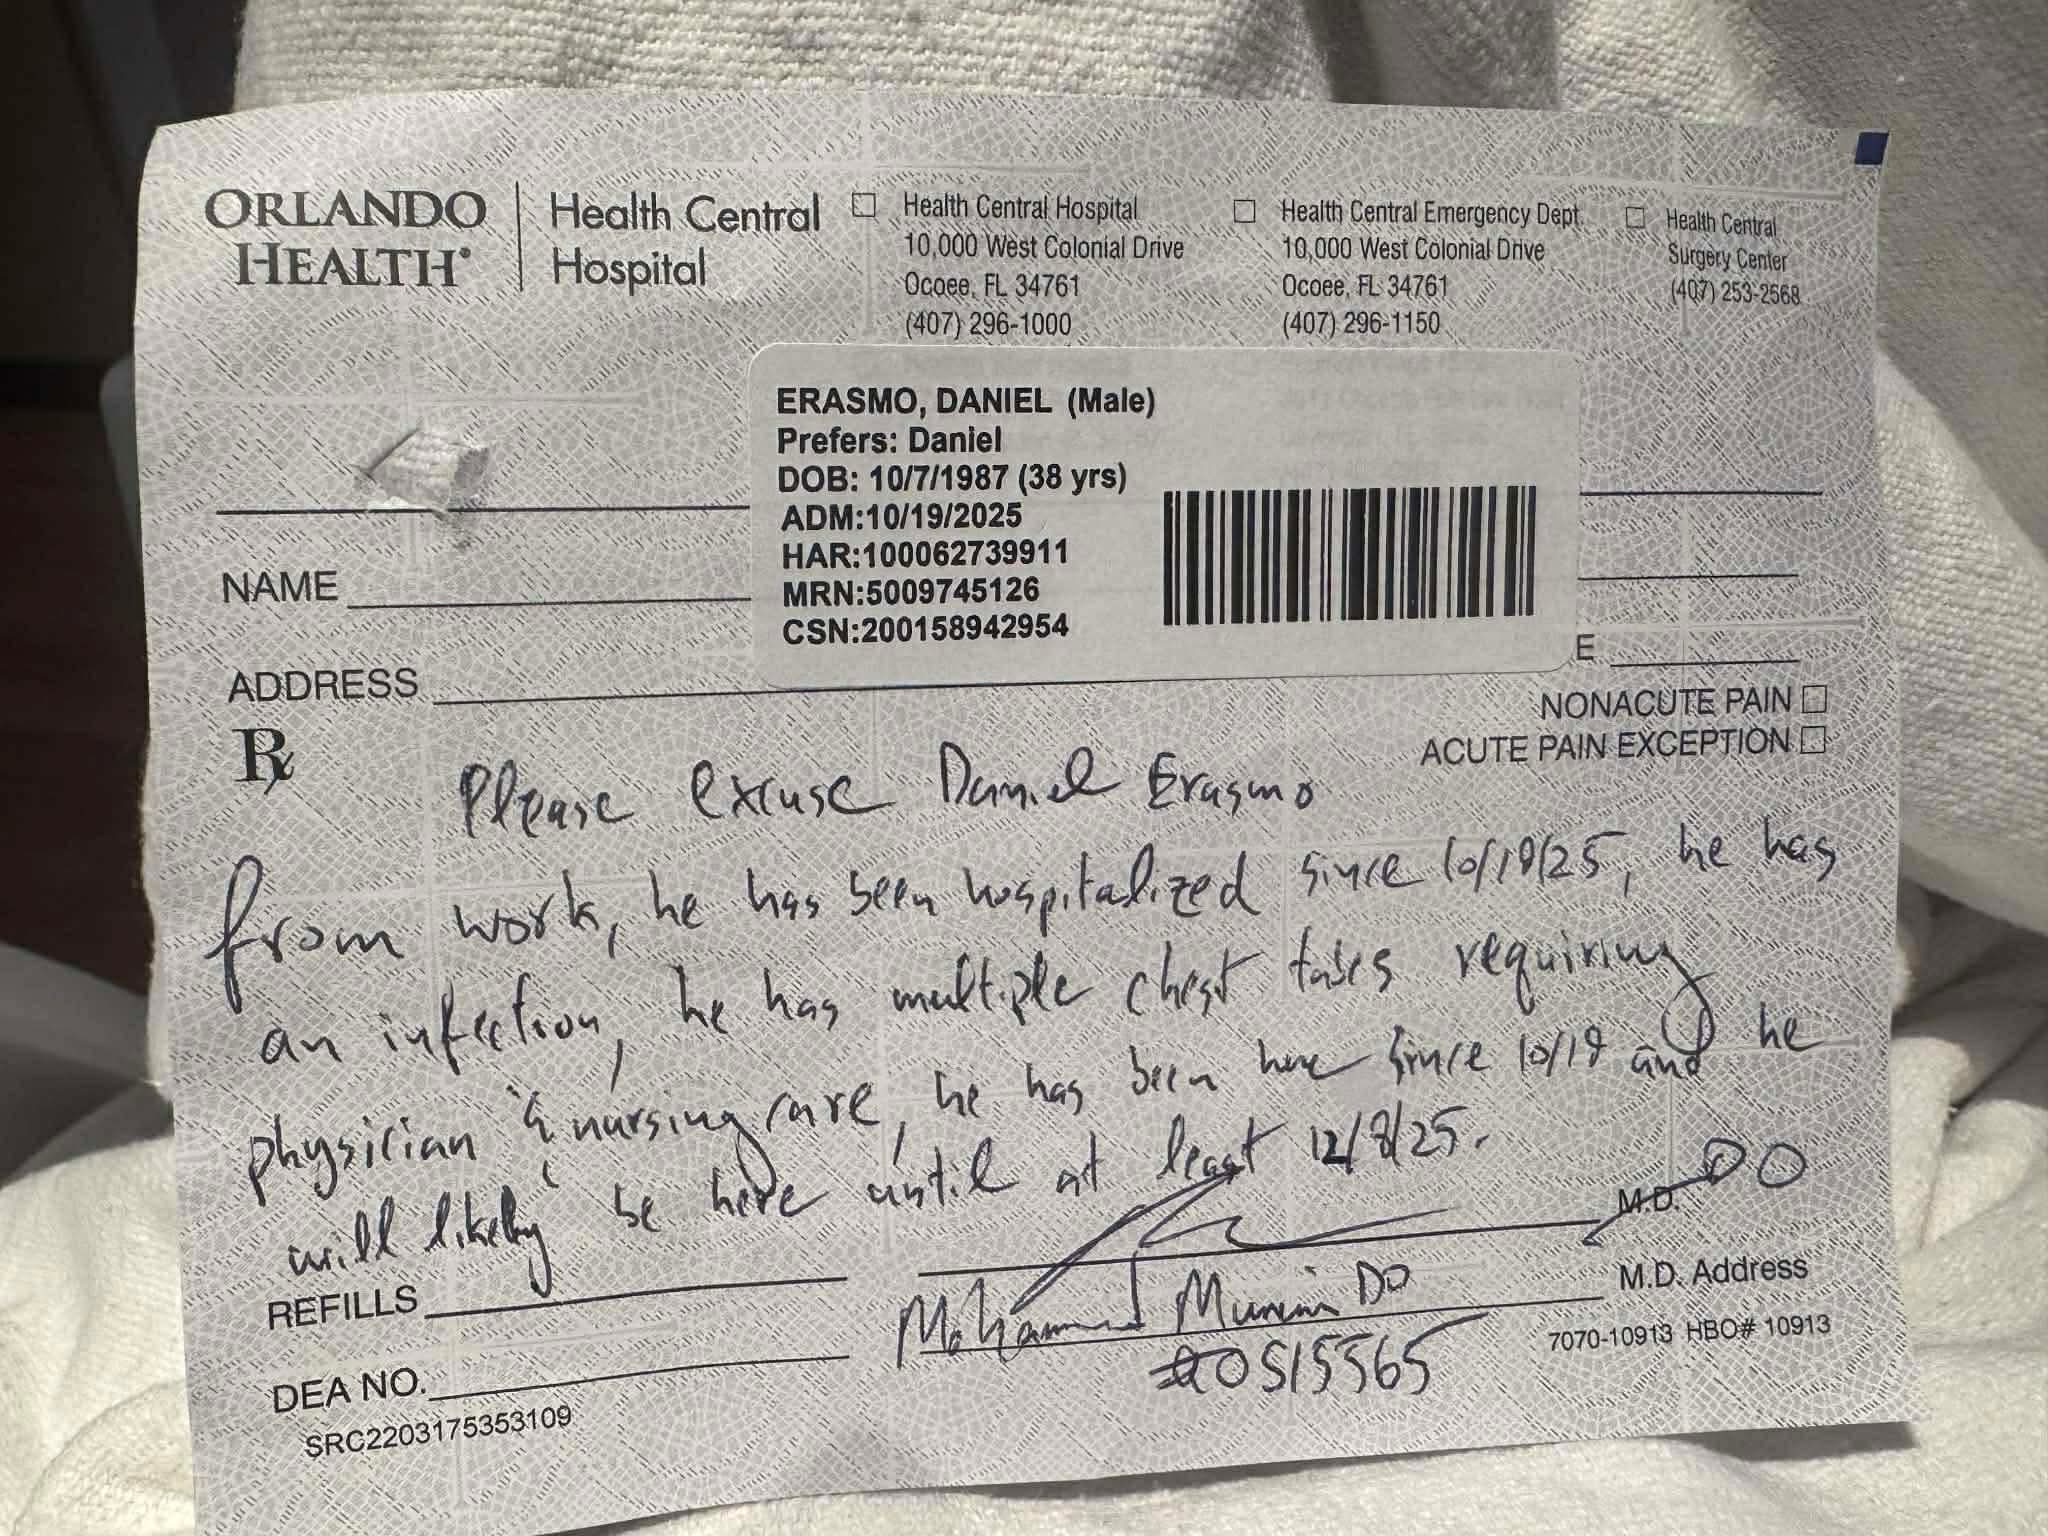 ORLANDO HEALTH® | Health Central Hospital
☐ Health Central Hospital
10,000 West Colonial Drive
Ocoee, FL 34761
(407) 296-1000
☐ Health Central Emergency Dept.
10,000 West Colonial Drive
Ocoee, FL 34761
(407) 296-1150
☐ Health Central
Surgery Center
(407) 253-2568
ERASMO, DANIEL (Male)
Prefers: Daniel
DOB: 10/7/1987 (38 yrs)
ADM:10/19/2025
HAR:100062739911
MRN:5009745126
CSN:200158942954
NAME
ADDRESS
E
NONACUTE PAIN ☐
ACUTE PAIN EXCEPTION ☐
Rx
Please excuse Daniel Erasmo
from work, he has been hospitalized since 10/19/25, he has
an infection, he has multiple chest tubes requiring
physician & nursing care, he has been here since 10/19 and he
will likely be here until at least 12/8/25.
M.D. DO
REFILLS
Mohammed DO
M.D. Address
DEA NO.
OS15565
7070-10913 HBO# 10913
SRC2203175353109